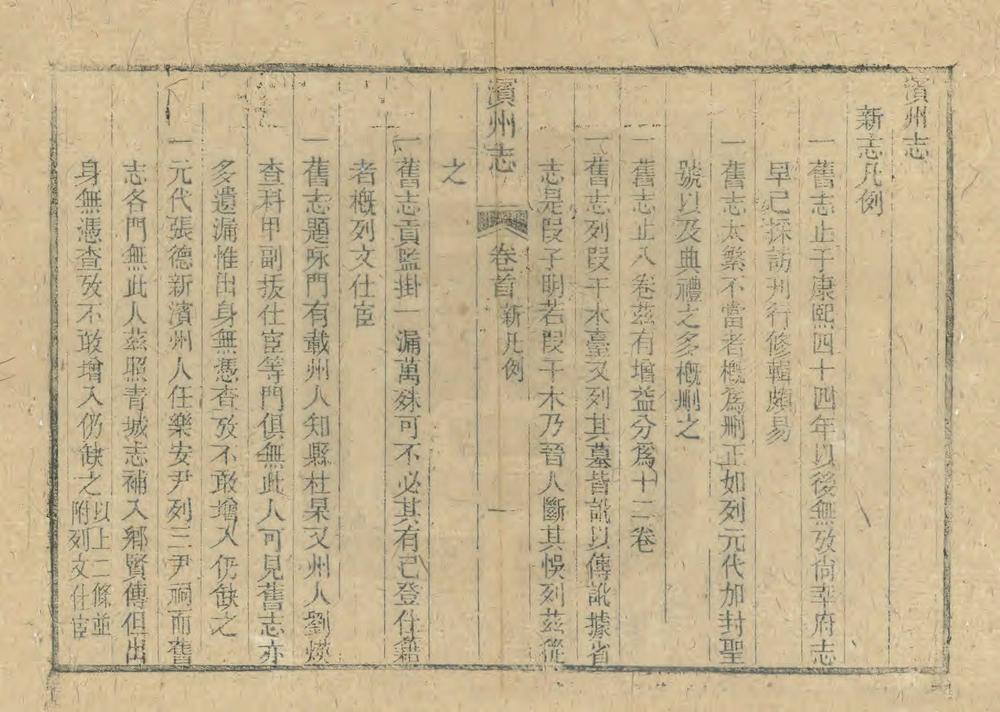 濱州志
新志凡例
一舊志止于康熙四十四年以後無攷尙幸府志
早已採訪刋行修輯頗易
一舊志太繁不當者概爲刪正如列元代加封聖
號以及典禮之多概刪之
一舊志止八卷茲有增益分爲十二卷
一舊志列段干木臺又列其墓皆訛以傳訛據省
志是段子明若段干木乃晉人斷其悞列茲從
濱州志 卷首 新凡例 一
之
一舊志貢監掛一漏萬殊可不必其有已登仕籍
者概列文仕宦
一舊志題咏門有載州人知縣杜杲又州人劉煐
查科甲副拔仕宦等門俱無此人可見舊志亦
多遺漏惟出身無憑查攷不敢增入仍缺之
一元代張德新濱州人任樂安尹列三尹祠而舊
志各門無此人茲照青城志補入鄉賢傳但出
身無憑查攷不敢增入仍缺之以上二條並附列文仕宦